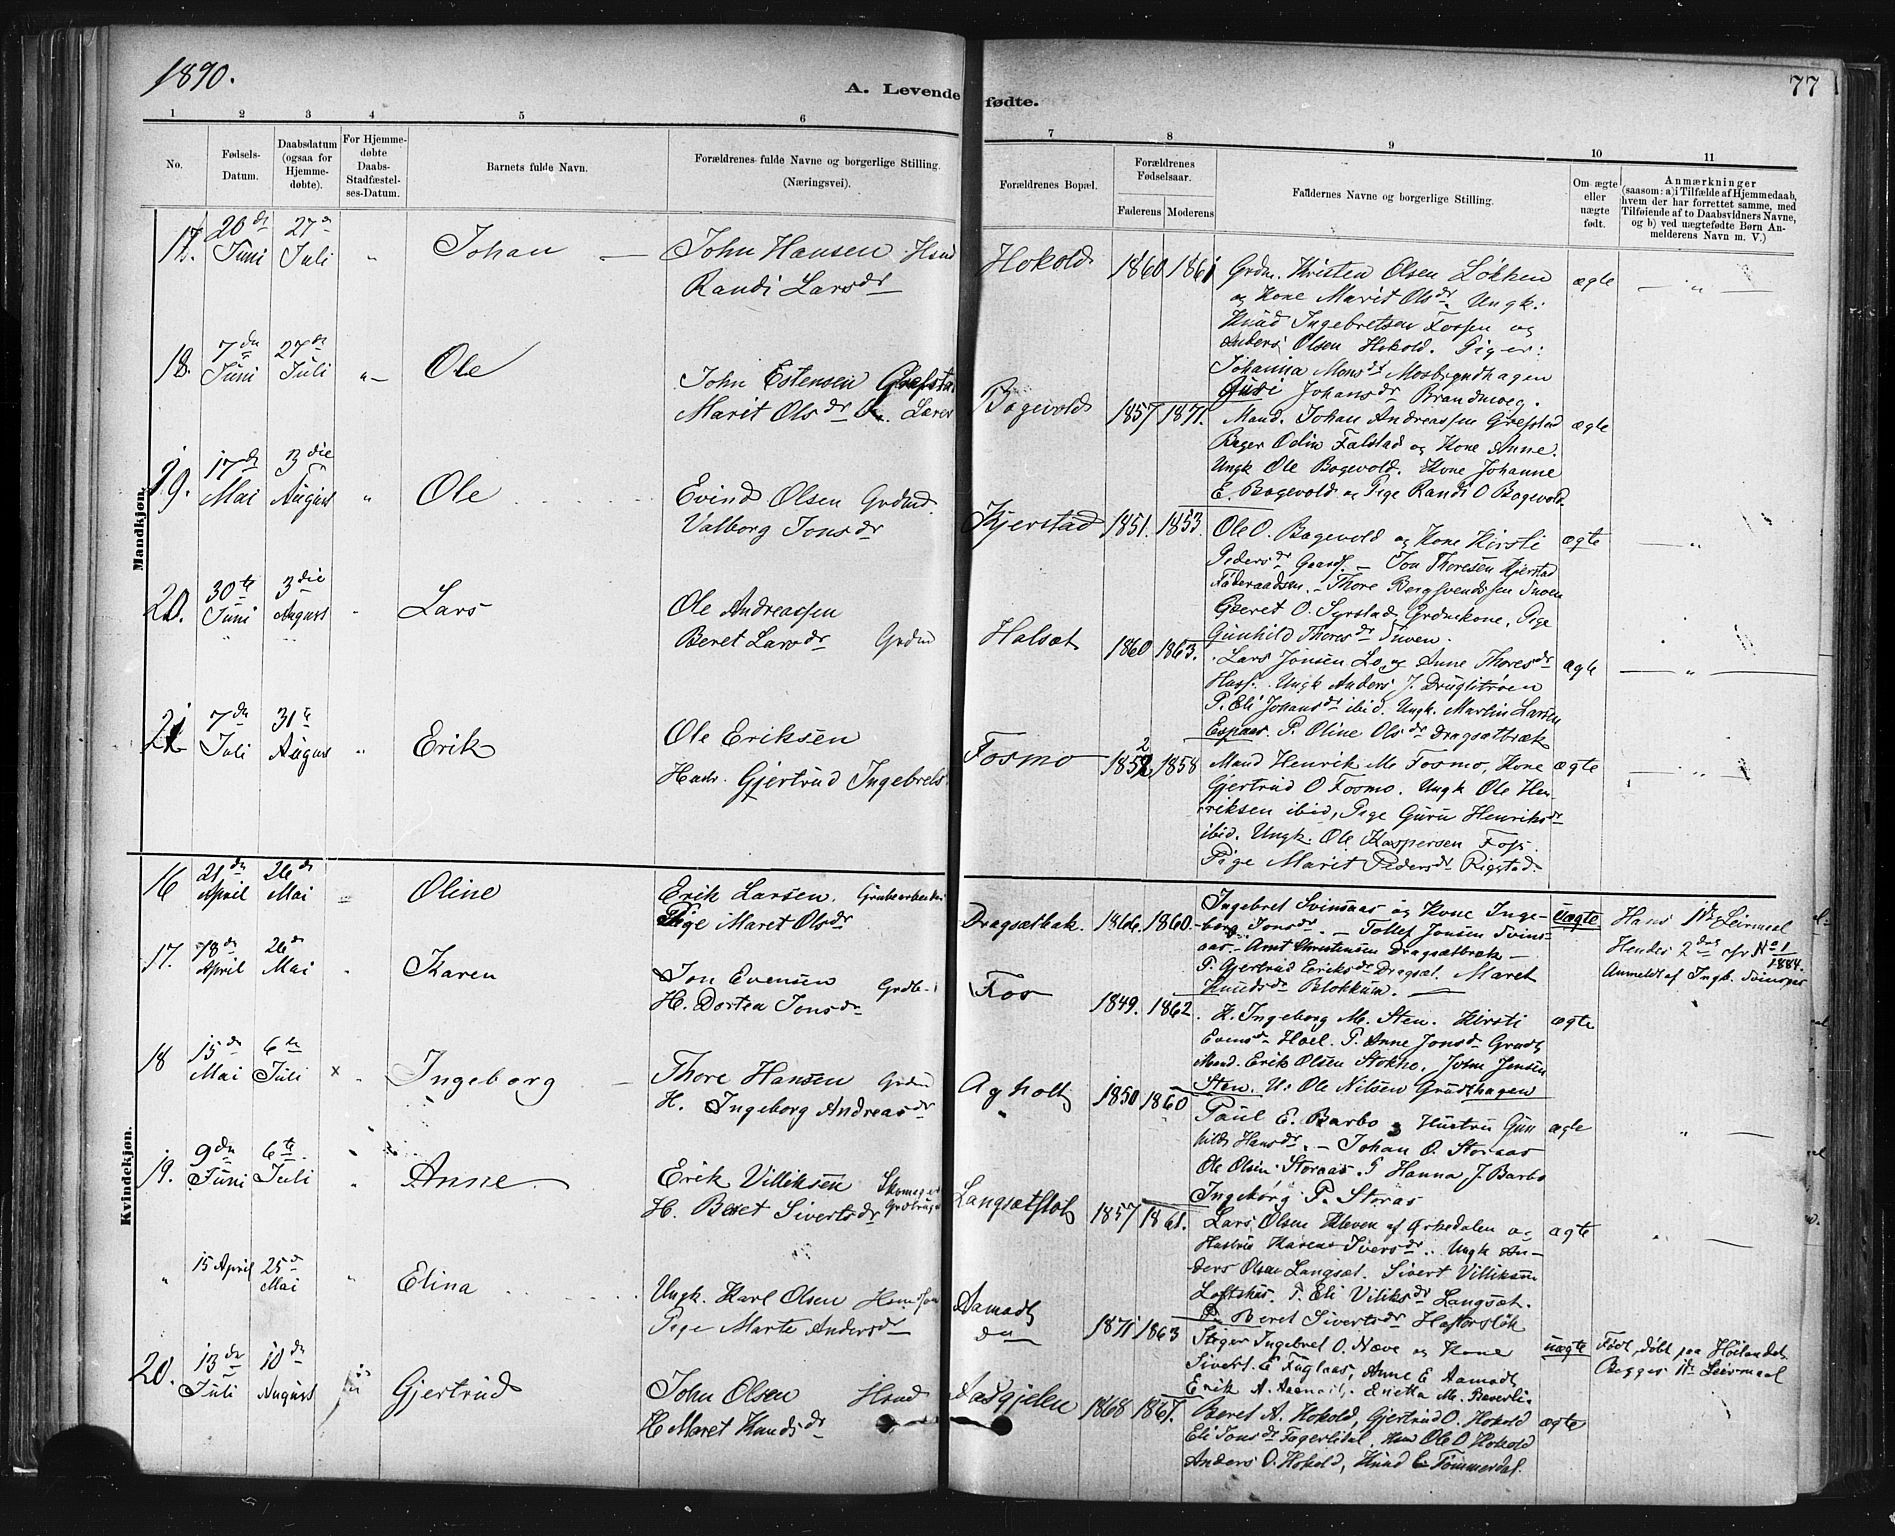 1890.
77
A. Levende fødte.
1 2 3 4 5 6 7 8 9 10 11
No.
Fødsels-
Datum.
Daabsdatum
(ogsaa for
Hjemme-
døbte).
For Hjemme-
døbte
Daabs-
Stadfæstel-
ses-Datum.
Barnets fulde Navn.
Forældrenes fulde Navne og borgerlige Stilling.
(Næringsvei).
Forældrenes Bopæl.
Forældrenes
Fødselsaar.
Faderens Moderens
Faddernes Navne og borgerlige Stilling.
Om ægte
eller
uægte
født.
Anmærkninger
(saasom: a) i Tilfælde af Hjemmedaab,
hvem der har forrettet samme, med
Tilføiende af to Daabsvidners Navne,
og b) ved uægtefødte Børn An-
melderens Navn m. V.)
Mandkjøn.
17. 26de Juni 27de Juli " Johan
John Hansen Hsmd
Randi Larsdr
Hokold 1860 1861
Grdm. Kristen Olsen Løkken
og Kone Marit Olsdr. Ungk:
Knud Ingebretsen Fossen og
Anders Olsen Hokold. Piger:
Johanna Monsdr Mosbryndhagen
Guri Johansdr Brandmoeg.
ægte "
18. 7de Juni 27de Juli " Ole
John Estensen Grefstad
Marit Olsdr
Bogevold 1857 1871.
Mand. Johan Andreassen Grefstad
Bager Odin Falstad og Kone Anne.
Ungk Ole Bogevold. Kone Johanne
E. Bogevold og Pige Randi O Bogevold.
ægte
19. 17de Mai 3die August " Ole
Evind Olsen Grdmd.
Valborg Jonsdr
Kjerstad 1851. 1853.
Ole O. Bogevold og Kone Kirsti
Pedersdr Jon Thoresen Kjerstad
Føderaadsm. Thore Bergsvendsen Tuven
Beret O. Syrstad Grdmkone, Pige
Gunhild Thoresdr Tuven.
ægte "
20. 30te Juni 3die August " Lars
Ole Andreassen
Beret Larsdr Grdm
Halsæt 1860 1863.
Lars Jonsen Lo, og Anne Thoresdr
Ungk Anders J. Druglitrøen
P. Eli Johansdr ibid. Ungk. Martin Larsen
Espaas. P. Oline Olsdr Dragsætbræk
ægte "
21 7de Juli 31te Augus " Erik
Ole Eriksen
Gjertrud Ingebrets
Fosmo 1852 1858
Mand Henrik M. Fosmo, Kone
Gjertrud O Fosmo. Ungk Ole Hen-
riksen ibid, Pige Guru Henriksdr
ibid. Ungk. Ole Kaspersen Fos.
Pige Marit Pedersdr Rigstad.
ægte "
Kvindekjøn.
16 21de April 26de Mai " Oline
Erik Larsen. Grubearbeider
Pige Maret Olsdr
Dragsætbak. 1866. 1860.
Ingebret Svinsaas og Kone Inge-
borg Jonsdr. Tollef Jonsen Svins-
aas Arnt Christensen Dragsætbræk
P. Gjertrud Eriksdr Dragsæt. Maret
Knudsdr Blokkum.
uægte
Hans 1ste Leirmaal
Hendes 2det cfr No 1
1884.
Anmeldt af Ingb. Svinsaas
17. 18de April 26de Mai " Karen
Jon Evensen Grdbr
H. Dortea Jonsdr
Fos 1849. 1862.
K. Ingeborg M. Sten. Kirsti
Evensdr Hoel. P. Anne Jonsdr Grudt
Mand. Erik Olsen Stokho, John Jensen
Sten. U: Ole Nilsen Grudthagen
ægte
18 15de Mai 6te Juli x " Ingeborg
Thore Hansen Grdm
H. Ingeborg Andreasdr
Agholt 1850 1860
Paul E. Barbo og Hustru Gun
hild Hansdr. Johan O. Storaas
Ole Olsen Storaas. P Hanna J. Barbo
Ingeborg P. Storas
ægte "
19. 9de Juni 6te Juli " Anne
Erik Villiksen Skomager
H. Beret Sivertsdr Grdbruger
Langsætslet 1857 1861.
Lars Olsen Kleven af Ørkedalen og
Hustru Karen Iversdr. Ungk An-
ders Olsen Langsæt. Sivert Villiksen
Loftshus. P. Eli Viliksdr Langsæt.
P. Beret Sivertsdr
ægte "
" 15 April 25de Mai " Elina
Ungk. Karl Olsen
Pige Marte Andersdr
Aamodt 1871 1863
Ingebret O. Næve og Kone
Sivert E Fuglaas, Anne E Aamodt
Erik A. Aamodt.
uægte
Født, døbt paa Høilandet
Begges 1ste Leirmaal
20. 13de Juli 10de August Gjertrud
John Olsen Hsmd
H. Maret Knudsdr
Aasgjelen 1868 1867.
Beret A. Hokold, Gjertrud O. Hokold
Eli Jonsdr Fagerlidal. Ole O Hokold
Anders O. Hokold, Knud E Tømmerdal.
ægte